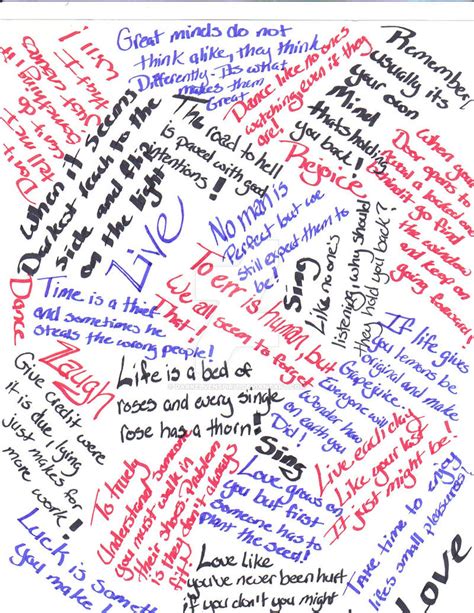 Great minds do not
think alike, they think
Differently - Its what
makes them
Great
Don't
tell me
I can't do
something I
Just
Will
When it seems
Darkest reach to the
side and flip
on the light
The road to hell
is paved with good
intentions!
Dance like no one's
watching even if they
are!
Remember,
usually its
your own
Mind
thats holding
you back!
Rejoice
When one
Door opens to
reveal a locked
go find
the window
and keep on
going forward!
Live
No man is
Perfect but we
still expect them to
be!
Sing
Like no one's
listening, why should
they hold you back?
Dance
Time is a thief
and sometimes he
steals the wrong people!
To err is human, but
we all seem to forget
That!
If life gives
you lemons be
original and make
Grapejuice
Everyone will
Wonder how
on earth you
Did!
Laugh
Life is a bed of
roses and every single
rose has a thorn!
Give credit were
it is due, lying
just makes for
more
work!
Sing
Live each day
Like your last
It just might be!
To truly
Understand someone
you must walk in
their shoes. Problem
is they don't always
fit!
Love grows on
you but first
someone has to
plant the seed!
Take time to enjoy
lifes small pleasures!
Luck is
you make
Love like
you've never been hurt
if you don't you might
Love